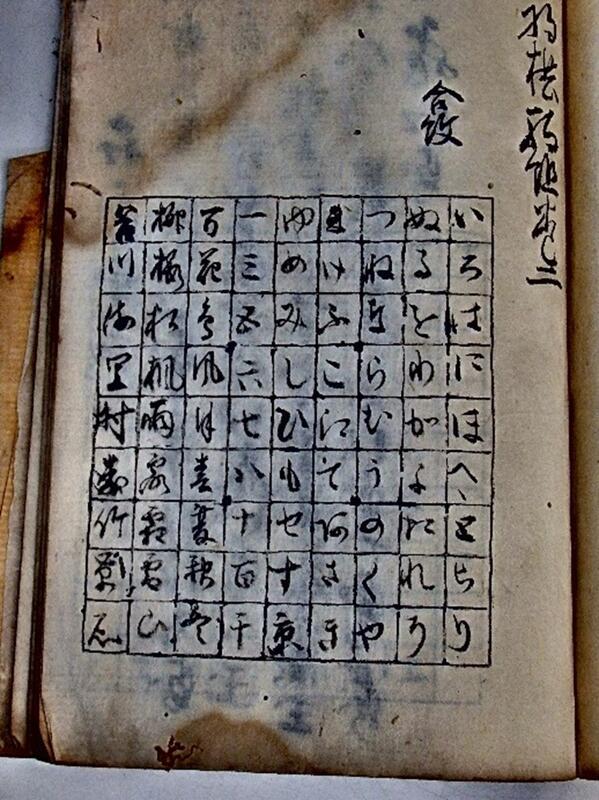 将棋巻之二
合紋
いろはにほへとちり
ぬるをわかよたれそ
つねならむうのくや
まけふこえてあさき
ゆめみしひもせす京
一三五六七八十百千
百花鳥風月春夏秋冬
柳桜松楓雨露霜雪山
川海里村竹石